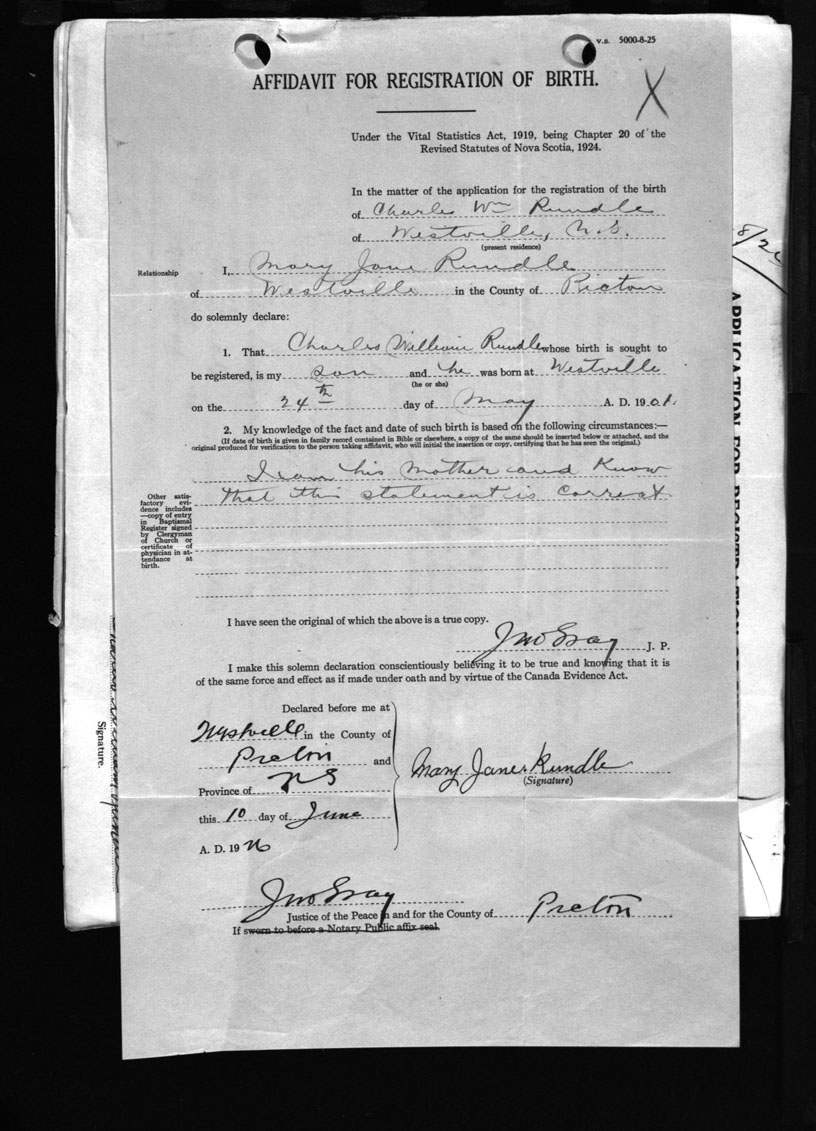 v.s. 5000-8-25
AFFIDAVIT FOR REGISTRATION OF BIRTH.
X
Under the Vital Statistics Act, 1919, being Chapter 20 of the
Revised Statutes of Nova Scotia, 1924.
In the matter of the application for the registration of the birth
of Charles Wm Rundle
of Westville, N.S.
(present residence)
Relationship
I, Mary Jane Rundle
of Westville in the County of Pictou
do solemnly declare:
1. That Charles William Rundle whose birth is sought to
be registered, is my son and he was born at Westville
(he or she)
on the 24th day of May A. D. 1901.
2. My knowledge of the fact and date of such birth is based on the following circumstances:—
(If date of birth is given in family record contained in Bible or elsewhere, a copy of the same should be inserted below or attached, and the
original produced for verification to the person taking affidavit, who will initial the insertion or copy, certifying that he has seen the original.)
I am his Mother and Know
that this statement is correct
Other satis-
factory evi-
dence includes
—copy of entry
in Baptismal
Register signed
by Clergyman
of Church or
certificate of
physician in at-
tendance at
birth.
I have seen the original of which the above is a true copy.
Jno Gray J. P.
I make this solemn declaration conscientiously believing it to be true and knowing that it is
of the same force and effect as if made under oath and by virtue of the Canada Evidence Act.
Declared before me at
Westville in the County of
Pictou and
Province of NS
this 10 day of June
A. D. 1926
Mary Jane Rundle
(Signature)
Jno Gray
Justice of the Peace in and for the County of Pictou
If sworn to before a Notary Public affix seal.
Signature.
8/26
APPLICATION FOR REGISTRATION OF